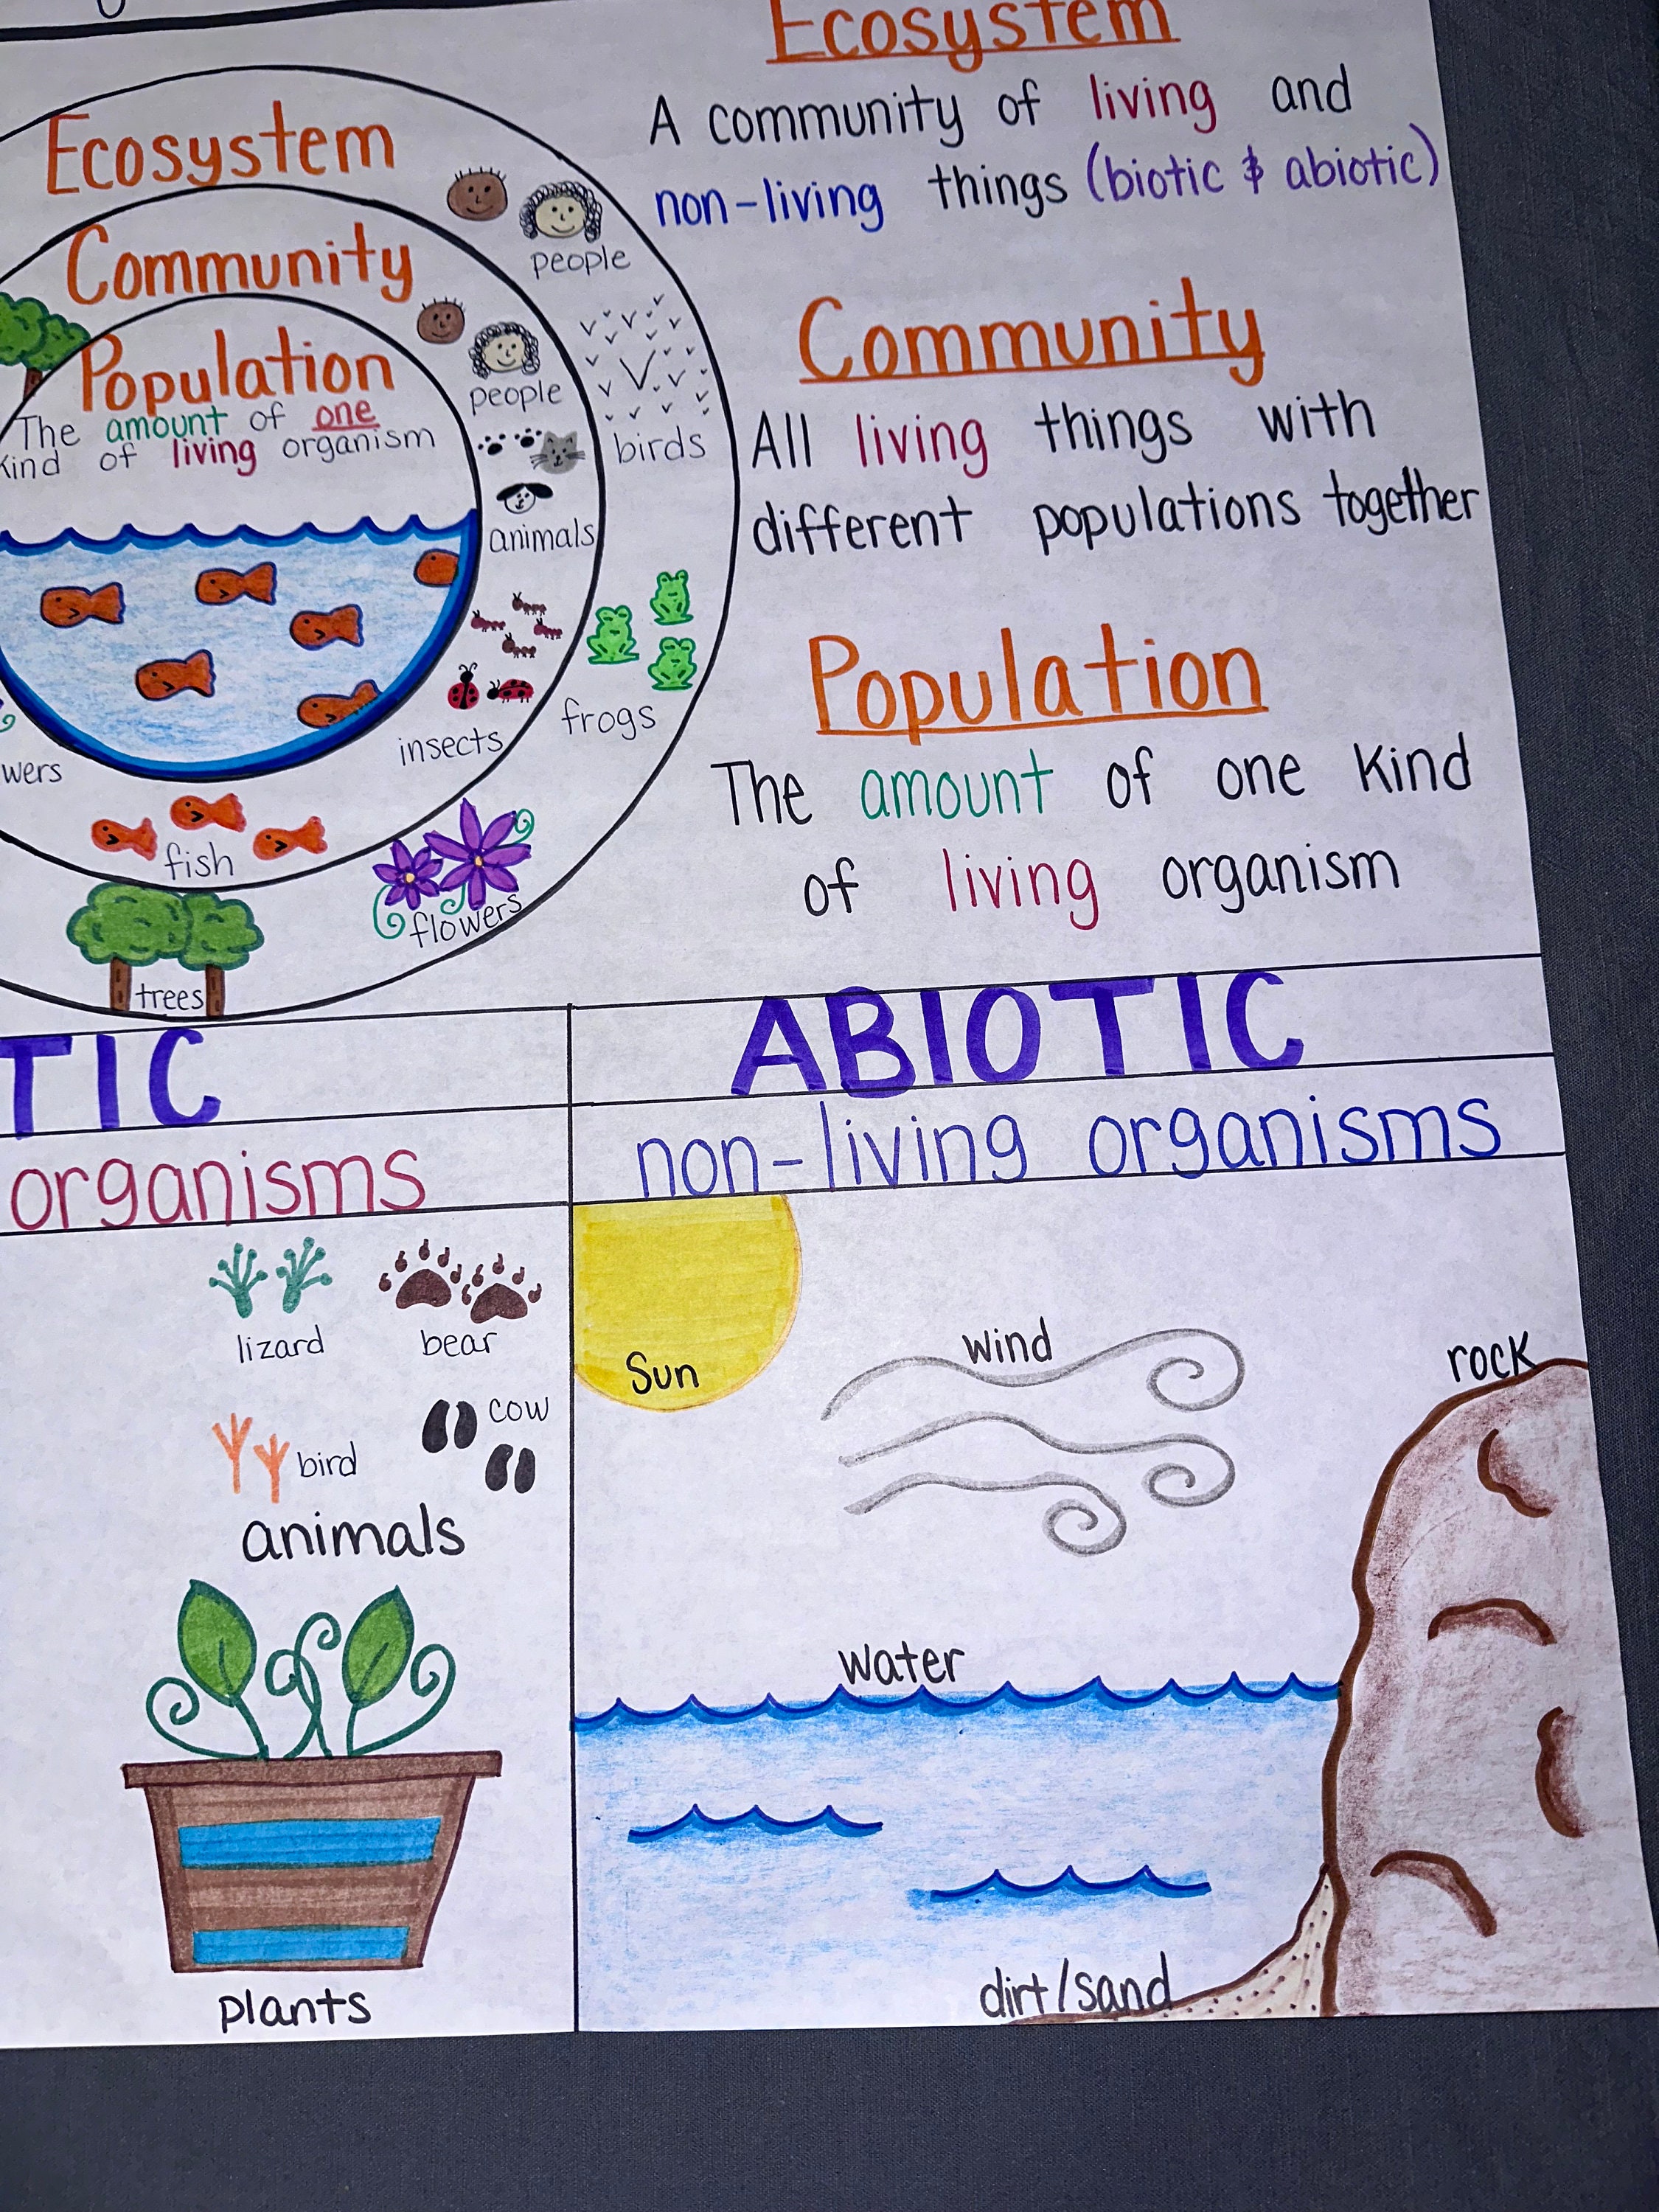 Ecosystem
A community of living and
non-living things (biotic & abiotic)
Community
All living things with
different populations together
Population
The amount of one kind
of living organism
Ecosystem
people
birds
frogs
flowers
trees
Community
people
animals
insects
fish
wers
Population
The amount of one
kind of living organism
TIC
organisms
lizard
bear
bird
cow
animals
plants
ABIOTIC
non-living organisms
Sun
wind
rock
water
dirt/sand